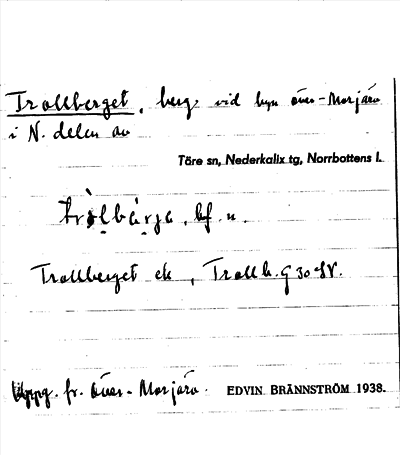 Trollberget, berg vid byn Över-Morjärv
i N. delen av
Töre sn, Nederkalix tg, Norrbottens l.
tròlbärje, bf. n.
Trollberget ek, Trollb. G 30 SV.
Uppg. fr. Över-Morjärv. EDVIN BRÄNNSTRÖM 1938.